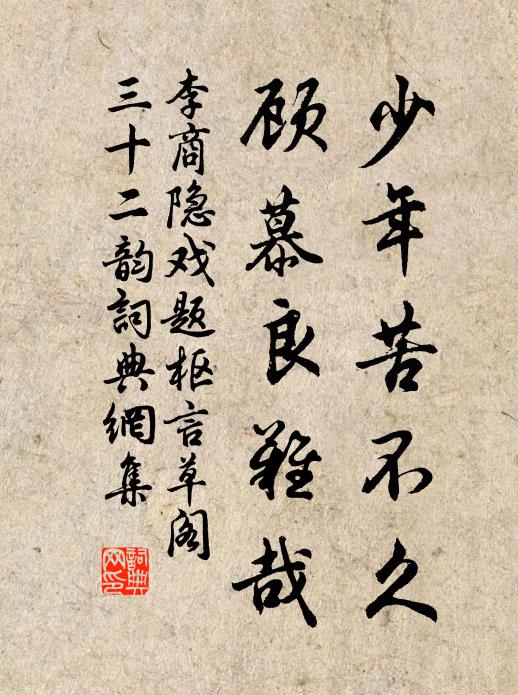 少年苦不久
顾慕良難哉
李商隐戏题枢言草阁
三十二韵詞典網集
詞典网印